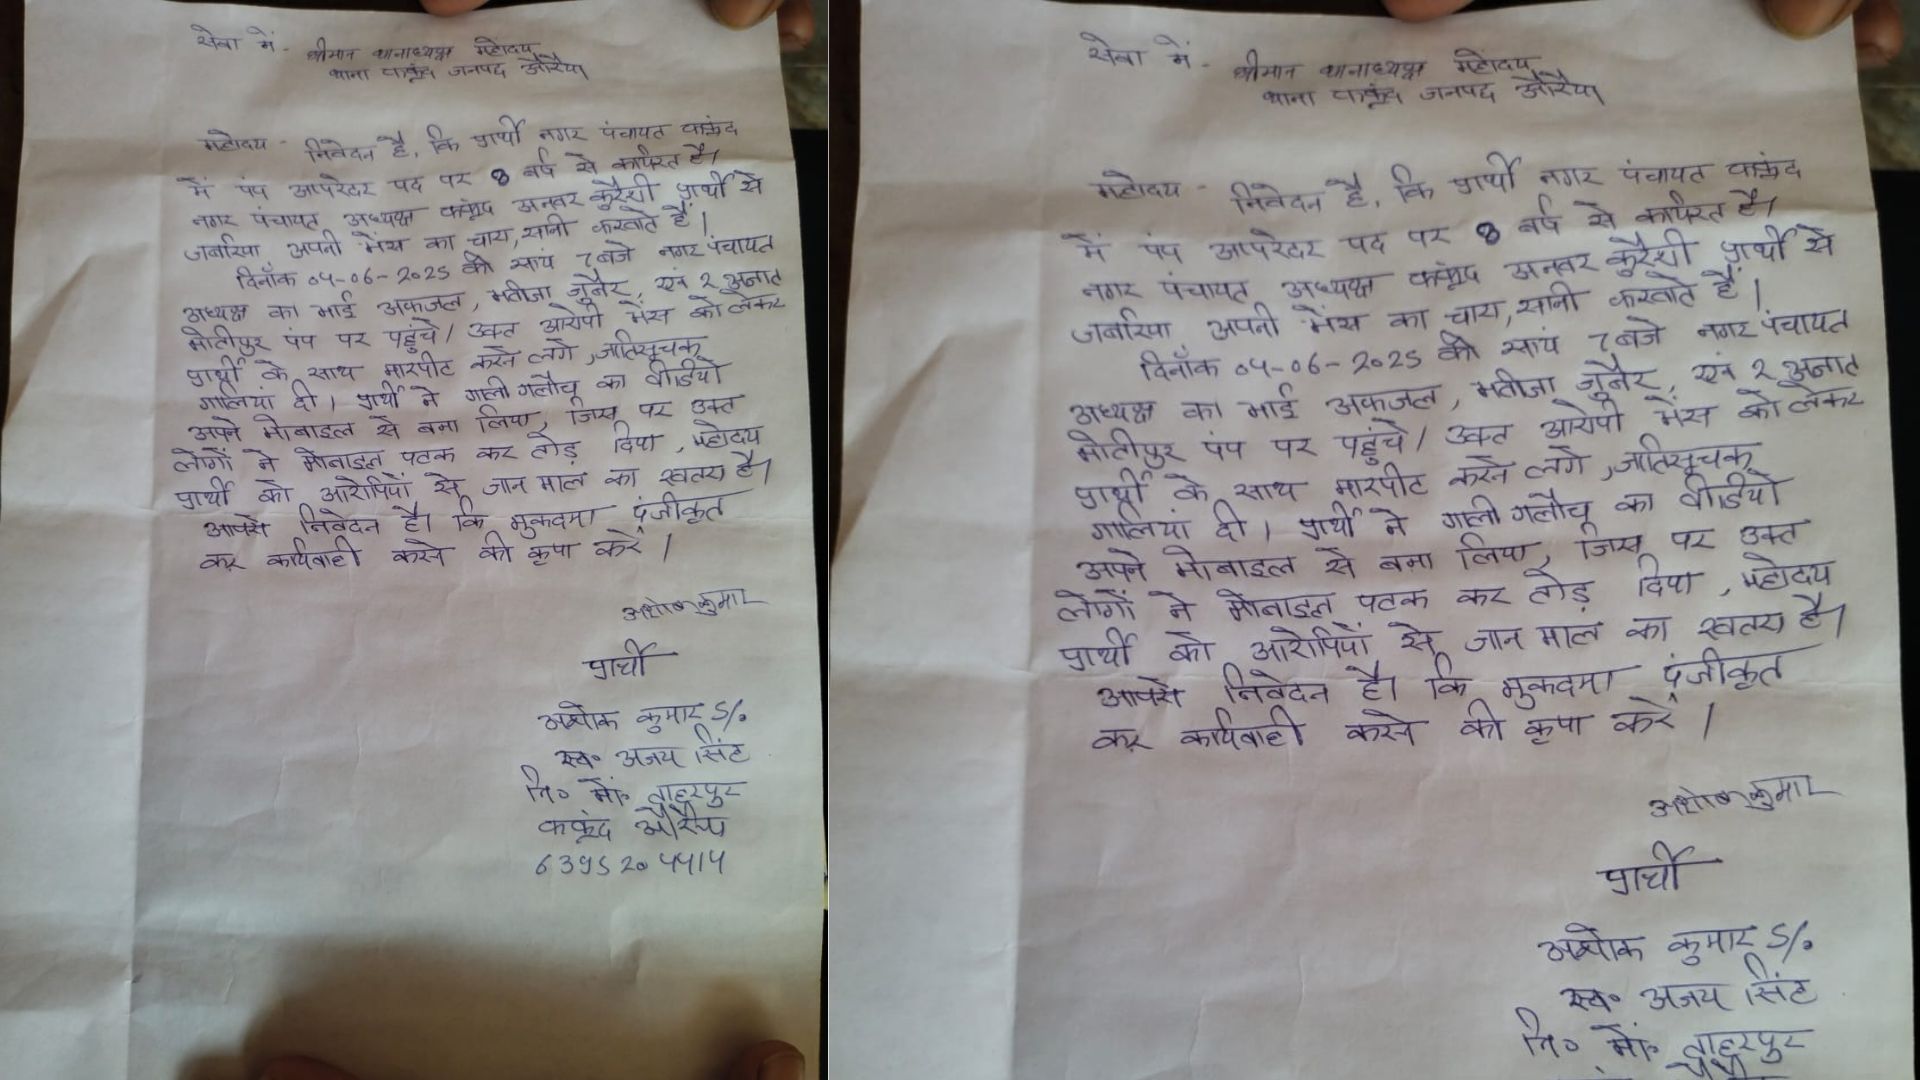 सेवा में -
श्रीमान थानाध्यक्ष महोदय
थाना फफूंद जनपद औरैया
महोदय - निवेदन है, कि प्रार्थी नगर पंचायत फफूंद
में पंप आपरेटर पद पर 8 वर्ष से कार्यरत है।
नगर पंचायत अध्यक्ष फफूंद अनवर कुरैशी प्रार्थी से
जबरिया, अपनी भैंस का चारा, सानी करवाते हैं।
दिनाँक 04-06-2025 की सायं 7 बजे नगर पंचायत
अध्यक्ष का भाई अफजल, भतीजा जुनैर, एवं 2 अज्ञात
मोतीपुर पंप पर पहुंचे। उक्त आरोपी भैंस को लेकर
प्रार्थी के साथ मारपीट करने लगे, जातिसूचक
गालियां दी। प्रार्थी ने गाली गलौच का वीडियो
अपने मोबाइल से बना लिया, जिस पर उक्त
लोगों ने मोबाइल पटक कर तोड़ दिया, महोदय
प्रार्थी को आरोपियों से जान माल का खतरा है।
आपसे निवेदन है। कि मुकदमा पंजीकृत
कर कार्यवाही करने की कृपा करें।
अशोक कुमार
प्रार्थी
अशोक कुमार S/o
स्व० अजय सिंह
नि० मो०
फफूंद औरैया
6395204414
सेवा में -
श्रीमान थानाध्यक्ष महोदय
थाना फफूंद जनपद औरैया
महोदय - निवेदन है, कि प्रार्थी नगर पंचायत फफूंद
में पंप आपरेटर पद पर 8 वर्ष से कार्यरत है।
नगर पंचायत अध्यक्ष फफूंद अनवर कुरैशी प्रार्थी से
जबरिया, अपनी भैंस का चारा, सानी करवाते हैं।
दिनाँक 04-06-2025 की सायं 7 बजे नगर पंचायत
अध्यक्ष का भाई अफजल, भतीजा जुनैर, एवं 2 अज्ञात
मोतीपुर पंप पर पहुंचे। उक्त आरोपी भैंस को लेकर
प्रार्थी के साथ मारपीट करने लगे, जातिसूचक
गालियां दी। प्रार्थी ने गाली गलौच का वीडियो
अपने मोबाइल से बना लिया, जिस पर उक्त
लोगों ने मोबाइल पटक कर तोड़ दिया, महोदय
प्रार्थी को आरोपियों से जान माल का खतरा है।
आपसे निवेदन है। कि मुकदमा पंजीकृत
कर कार्यवाही करने की कृपा करें।
अशोक कुमार
प्रार्थी
अशोक कुमार S/o
स्व० अजय सिंह
नि० मो०